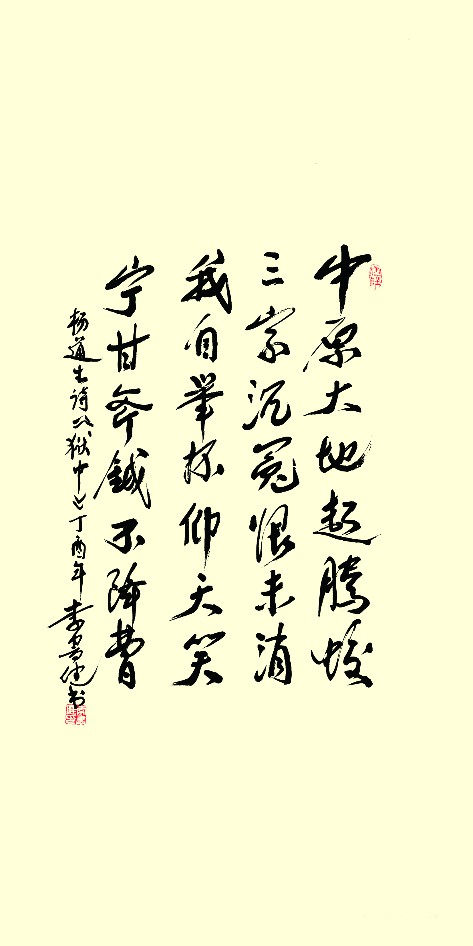 中原大地起腾蛟
三家沉冤恨未消
我自举杯仰天笑
宁甘斧钺不降曹
杨道生诗《狱中》丁酉年 李 健书